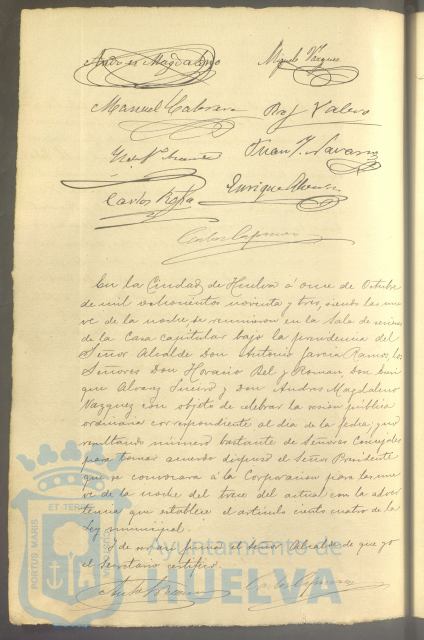 Andres Magdaleno Vazquez
Manuel
Valero
Juan J. Navarro
Carlos
Enrique Alvarez
Carlos
En la Ciudad de Huelva á once de Octubre
de mil ochocientos noventa y tres, siendo las nue
ve de la noche, se reunieron en la Sala de sesiones
de la Casa capitular bajo la presidencia del
Señor Alcalde Don Antonio Garcia Ramos, los
Señores Don Horacio Bel y Roman, Don Enri
que Alvarez y Don Andres Magdaleno
Vazquez con objeto de celebrar la sesion pública
ordinaria correspondiente al dia de la fecha; y no
resultando número bastante de Señores Concejales
para tomar acuerdo dispuso el Señor Presidente
que se convocara á la Corporacion para las nue
ve de la noche del trece del actual con la adver
tencia que establece el artículo ciento cuatro de la
Ley municipal.
Y de ello firma el Señor Alcalde de que yo
el Secretario certifico.
PORTUS MARIS
ET TERRÆ
Ayuntamiento de
HUELVA